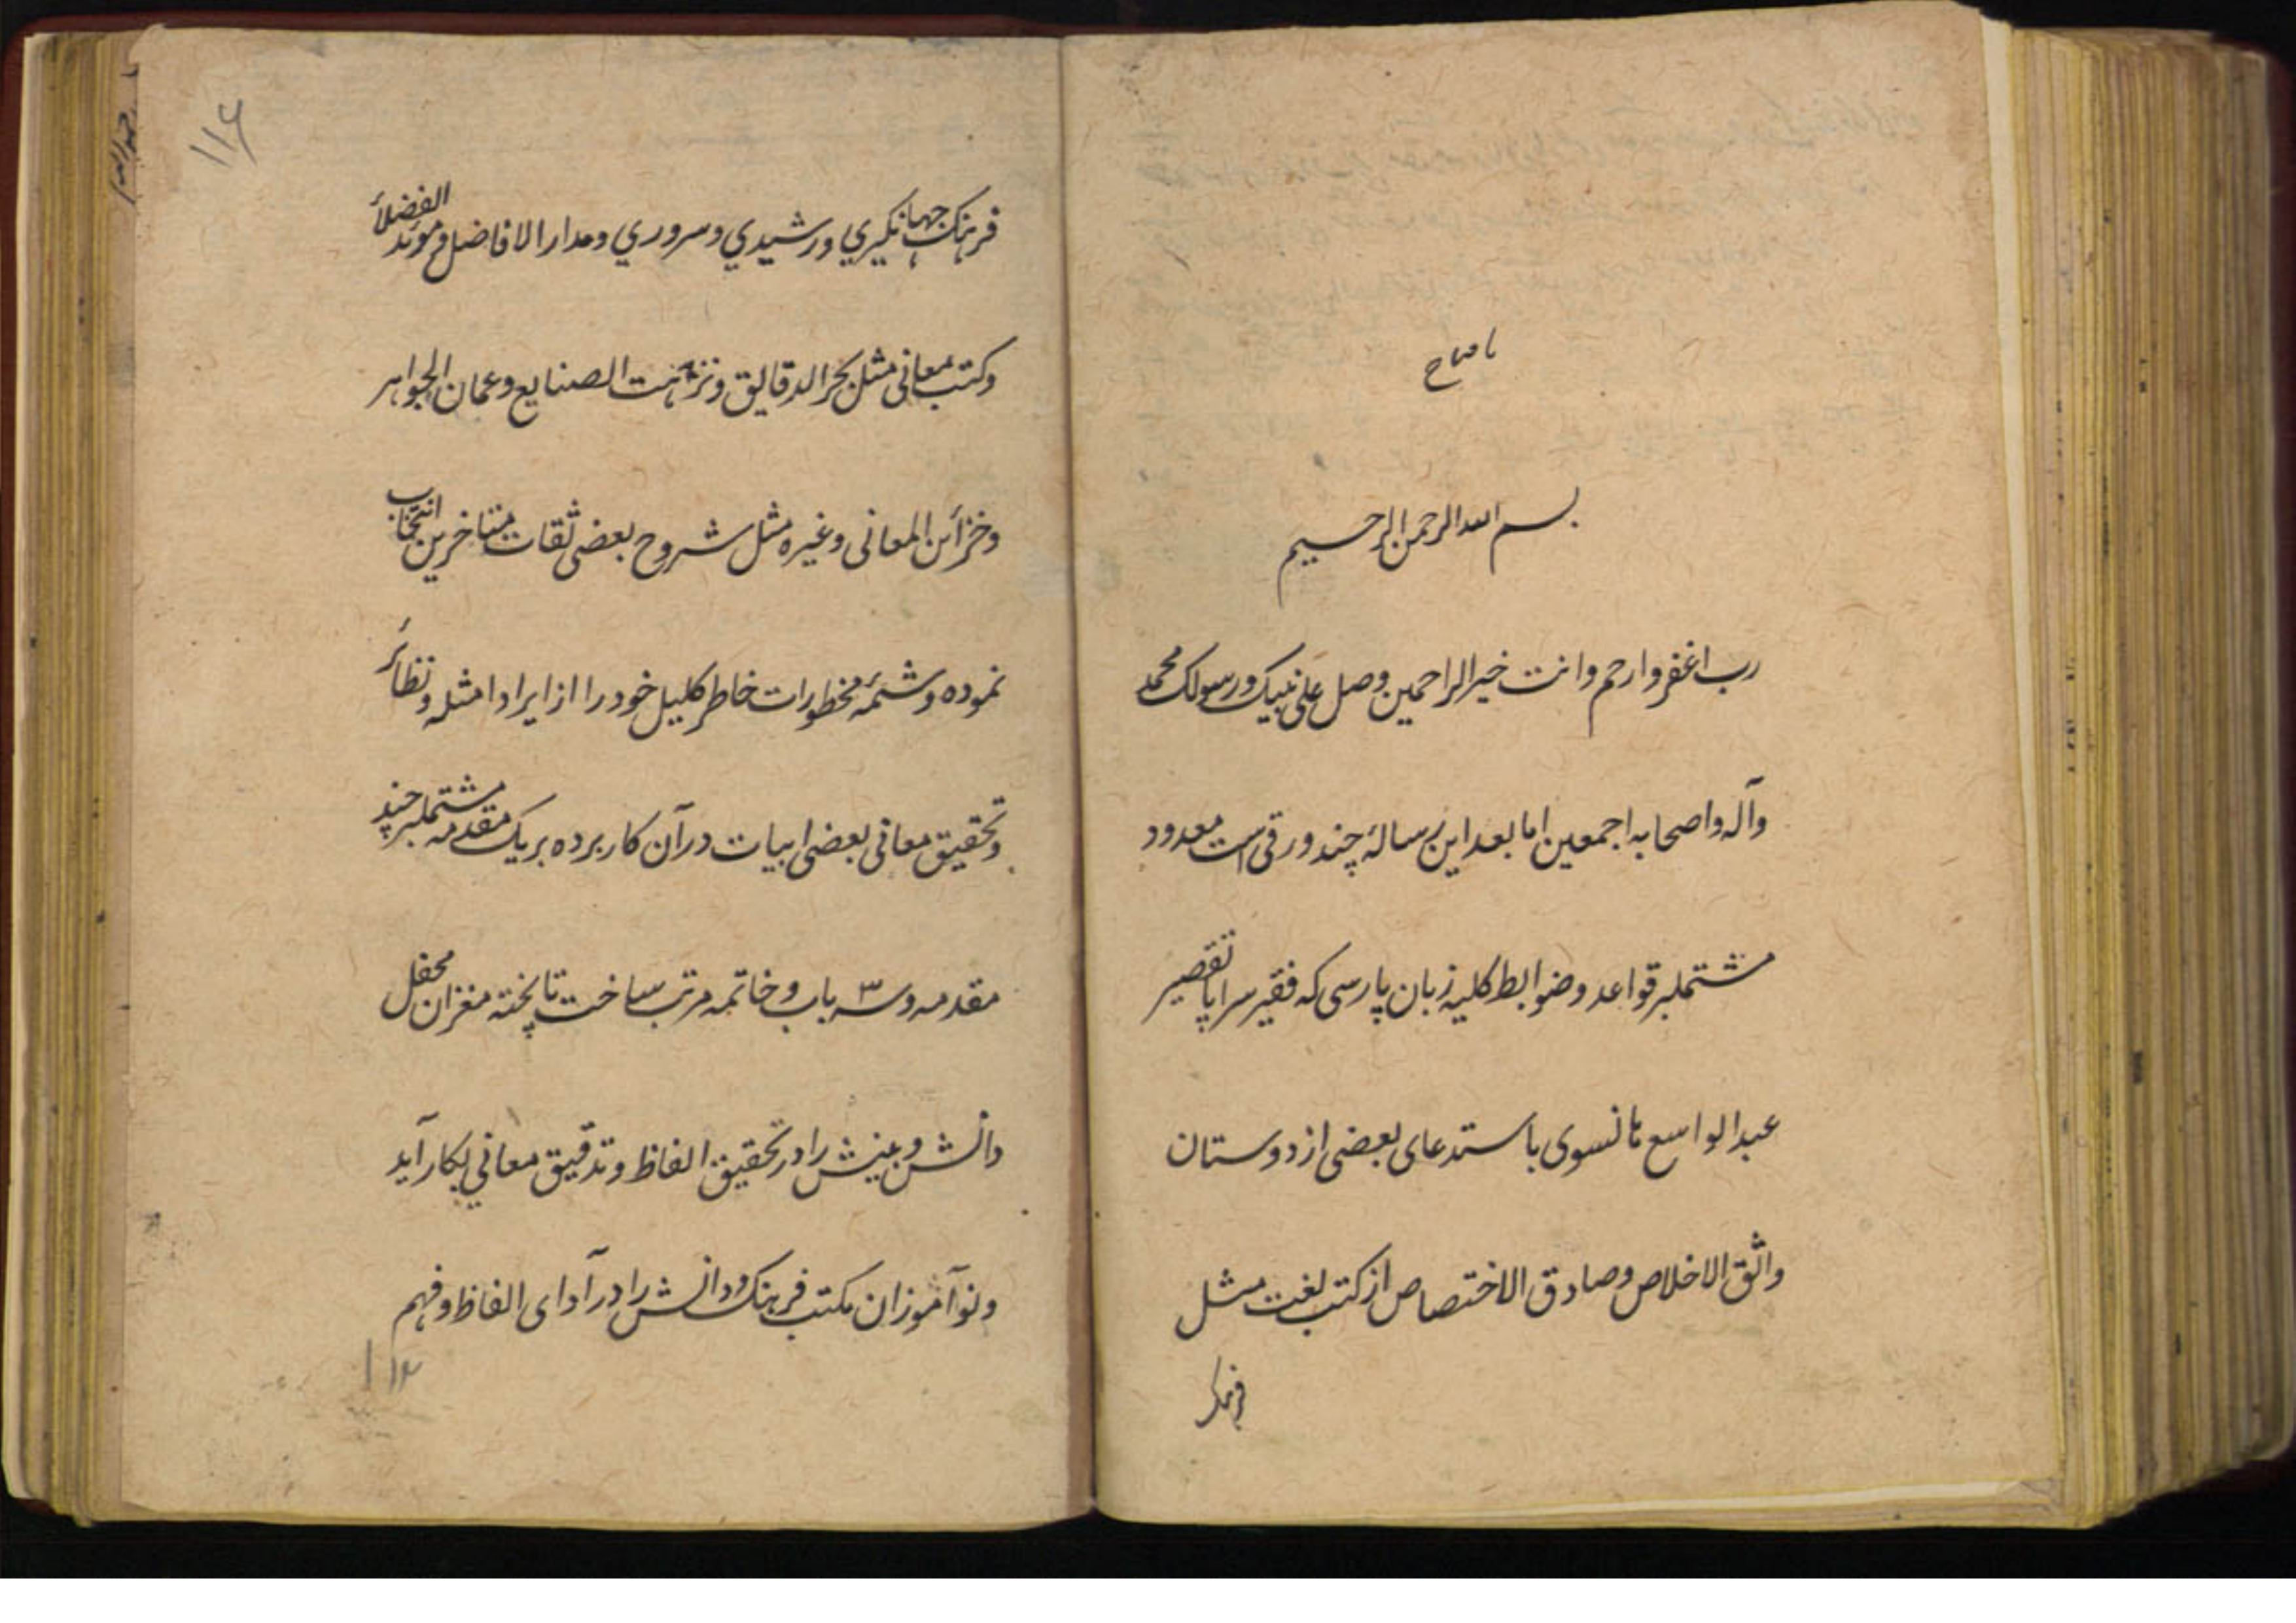 یا فتاح
بسم الله الرحمن الرحیم
رب اغفر وارحم وانت خیر الراحمین وصل علی نبیک ورسولک محمد
وآله واصحابه اجمعین اما بعد این رسالۀ چند ورقی است معدود
مشتملبر قواعد وضوابط کلیه زبان پارسی که فقیر سراپا تقصیر
عبدالواسع هانسوی باستدعای بعضی از دوستان
واثق الاخلاص وصادق الاختصاص از کتب لغت مثل
فرهنک
۱۱۶
فرهنک جهانکیري ورشیدي وسروري ومدار الافاضل وموئد الفضلاء
وکتب معانی مثل بحر الدقایق ونزهت الصنایع وعمان الجواهر
وخزائن المعانی وغیره مثل شروح بعضی ثقات متاخرین انتخاب
نموده وشمۀ مخطورات خاطر کلیل خود را از ایراد امثله ونظائر
وتحقیق معانی بعضی ابیات در آن کار برده بر یک مقدمه مشتملبر چند
مقدمه وسه ۳ باب وخاتمه مرتب ساخت تا پخته مغزان محفل
دانش وبینش را در تحقیق الفاظ وتدقیق معاني بکار آید
ونوآموزان مکتب فرهنک ودانش را در آدای الفاظ وفهم